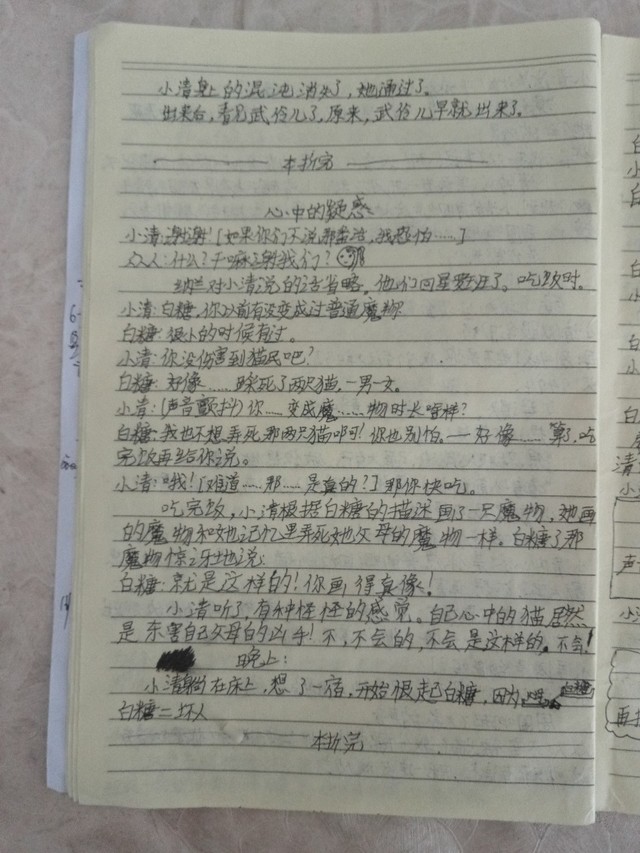 小清身上的混沌消失了，她通过了。
出来后，看见武伶儿了，原来，武伶儿早就出来了。
本折完
心中的疑惑
小清:谢谢！[如果你们不说那句话，我恐怕……]
众人:什么？干嘛谢我们？
对小清说的话省略，他们回星罗班了。吃饭时。
小清:白糖，你以前有没变成过普通魔物？
白糖:很小的时候有过。
小清:你没伤害到猫民吧？
白糖:好像……踩死了两只猫，一男一女。
小清:(声音颤抖)你……变成魔……物时长啥样？
白糖:我也不想弄死那两只猫啊！你也别怕。——好像……算了，吃
完饭再给你说。
小清:哦！[难道……那……是真的？]那你快吃。
吃完饭，小清根据白糖的描述画了一只魔物，她画
的魔物和她记忆里弄死她父母的魔物一样。白糖了那
魔物惊讶地说:
白糖:就是这样的！你画得真像！
小清听了，有种怪怪的感觉。自己心中的猫居然
是杀害自己父母的凶手！不，不会的，不会是这样的。不会！
晚上:
小清躺在床上，想了一宿，开始恨起白糖，因为 白糖
白糖=坏人
本折完
白
小
白
白
清
声
小清
再